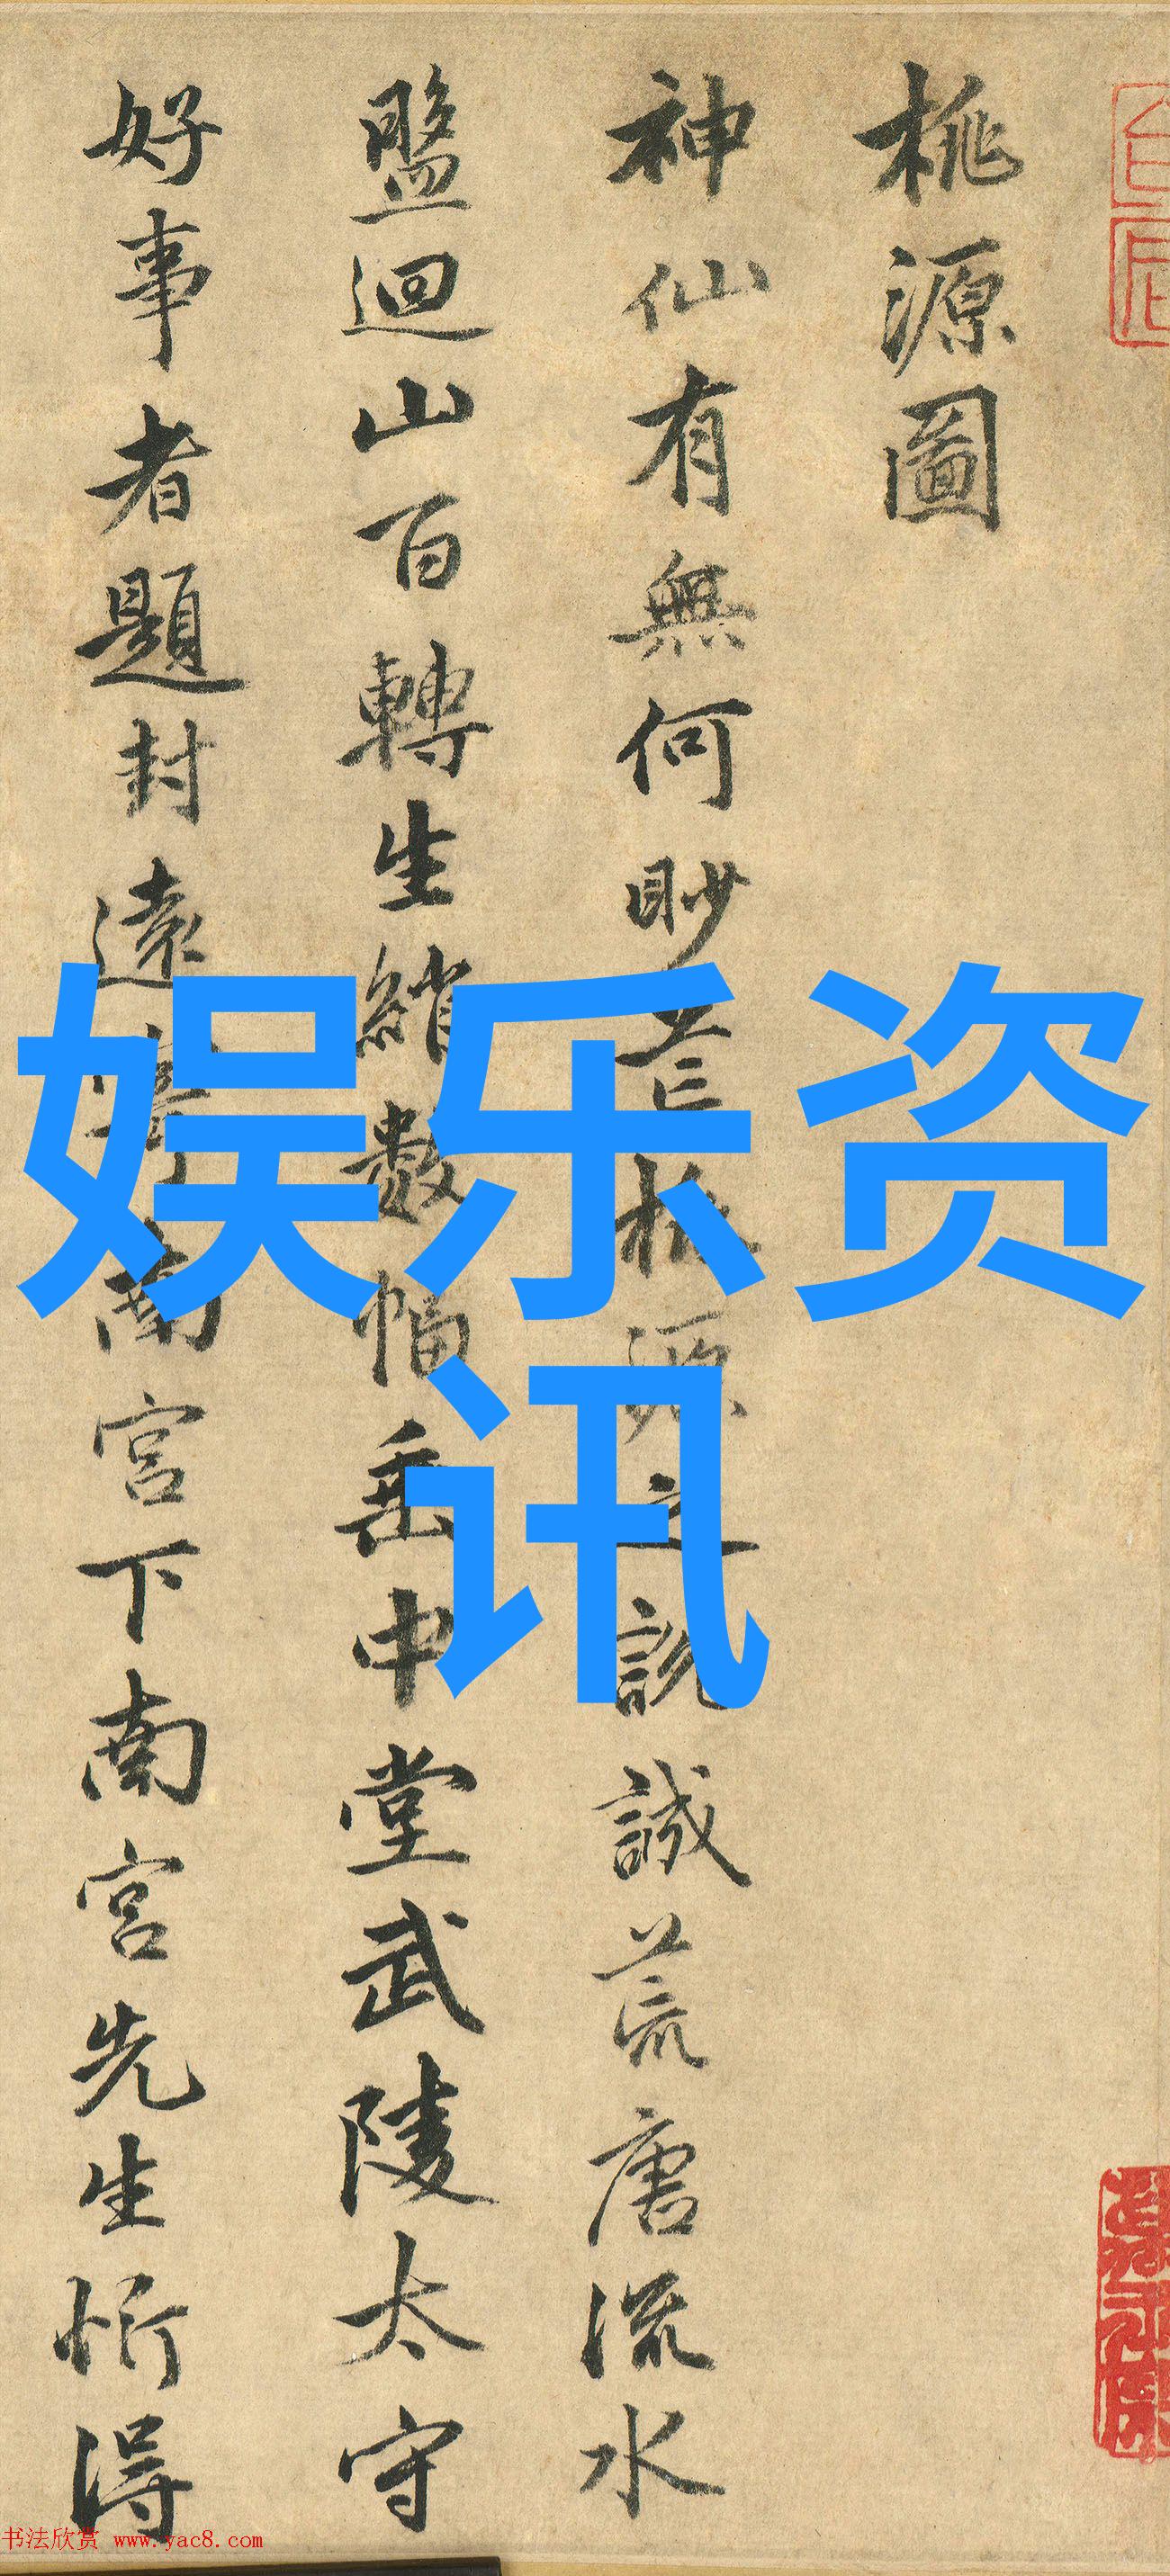 桃源圖
神仙有無何眇芒桃源之説誠荒唐流水
盤迴山百轉生綃數幅垂中堂武陵太守
好事者題封遠寄南宮下南宮先生忻得
娱乐资
讯
书法欣赏 www.yac8.com